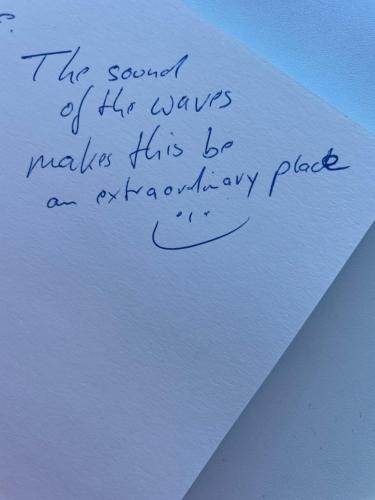 The sound
of the waves
makes this be
an extraordinary place